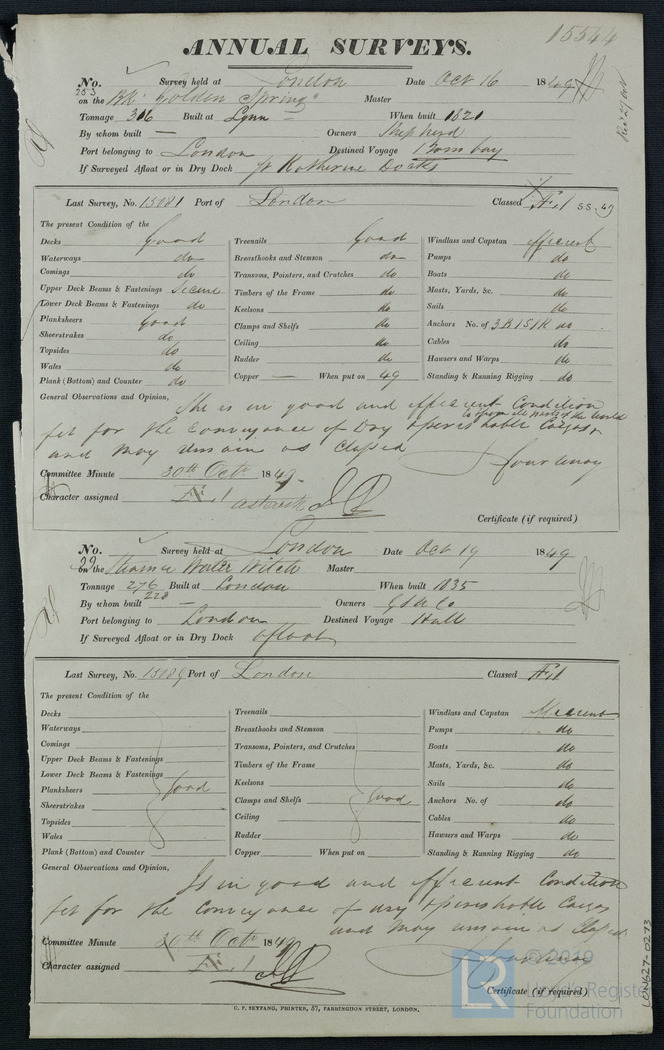 15544
ANNUAL SURVEYS.
No. 253 Survey held at London Date Oct 16 1849
on the Bk "Golden Spring" Master
Tonnage 316 Built at Lynn When built 1821
By whom built — Owners Shepherd
Port belonging to London Destined Voyage Bombay
If Surveyed Afloat or in Dry Dock St Katherine Docks
Last Survey, No. 15081 Port of London Classed Æ 1 SS. 49
The present Condition of the
Decks Good Treenails Good Windlass and Capstan efficient
Waterways do Breasthooks and Stemson do Pumps do
Comings do Transoms, Pointers, and Crutches do Boats do
Upper Deck Beams & Fastenings Secure Timbers of the Frame do Masts, Yards, &c. do
Lower Deck Beams & Fastenings do Keelsons do Sails do
Planksheers Good Clamps and Shelfs do Anchors No. of 3B 1S 1K do
Sheerstrakes do Ceiling do Cables do
Topsides do Rudder do Hawsers and Warps do
Wales do Copper — When put on 49 Standing & Running Rigging do
Plank (Bottom) and Counter do
General Observations and Opinion, She is in good and efficient Condition
fit for the Conveyance of Dry & perishable Cargos to & from all parts of the World
and may remain as Classed
Committee Minute 30th Octr 1849
Character assigned Æ 1 asterisk
Certificate (if required)
No. 29 Survey held at London Date Oct 19 1849
on the Water Witch Master
Tonnage 276 228 Built at London When built 1835
By whom built — Owners
Port belonging to London Destined Voyage Hull
If Surveyed Afloat or in Dry Dock afloat
Last Survey, No. 15089 Port of London Classed Æ 1
The present Condition of the
Decks Treenails Windlass and Capstan Efficient
Waterways Breasthooks and Stemson Pumps do
Comings Transoms, Pointers, and Crutches Boats do
Upper Deck Beams & Fastenings Timbers of the Frame Masts, Yards, &c. do
Lower Deck Beams & Fastenings Keelsons Sails do
Planksheers Good Clamps and Shelfs Good Anchors No. of do
Sheerstrakes Ceiling Cables do
Topsides Rudder Hawsers and Warps do
Wales Copper When put on Standing & Running Rigging do
Plank (Bottom) and Counter
General Observations and Opinion, Is in good and efficient Condition
fit for the Conveyance of dry & perishable Cargos
and may remain as Classed
Committee Minute 30th Octr 1849
Character assigned Æ 1
Certificate (if required)
C. F. SEYFANG, PRINTER, 57, FARRINGDON STREET, LONDON.
LON627-0273
© 2019
LR
Lloyd's Register
Foundation